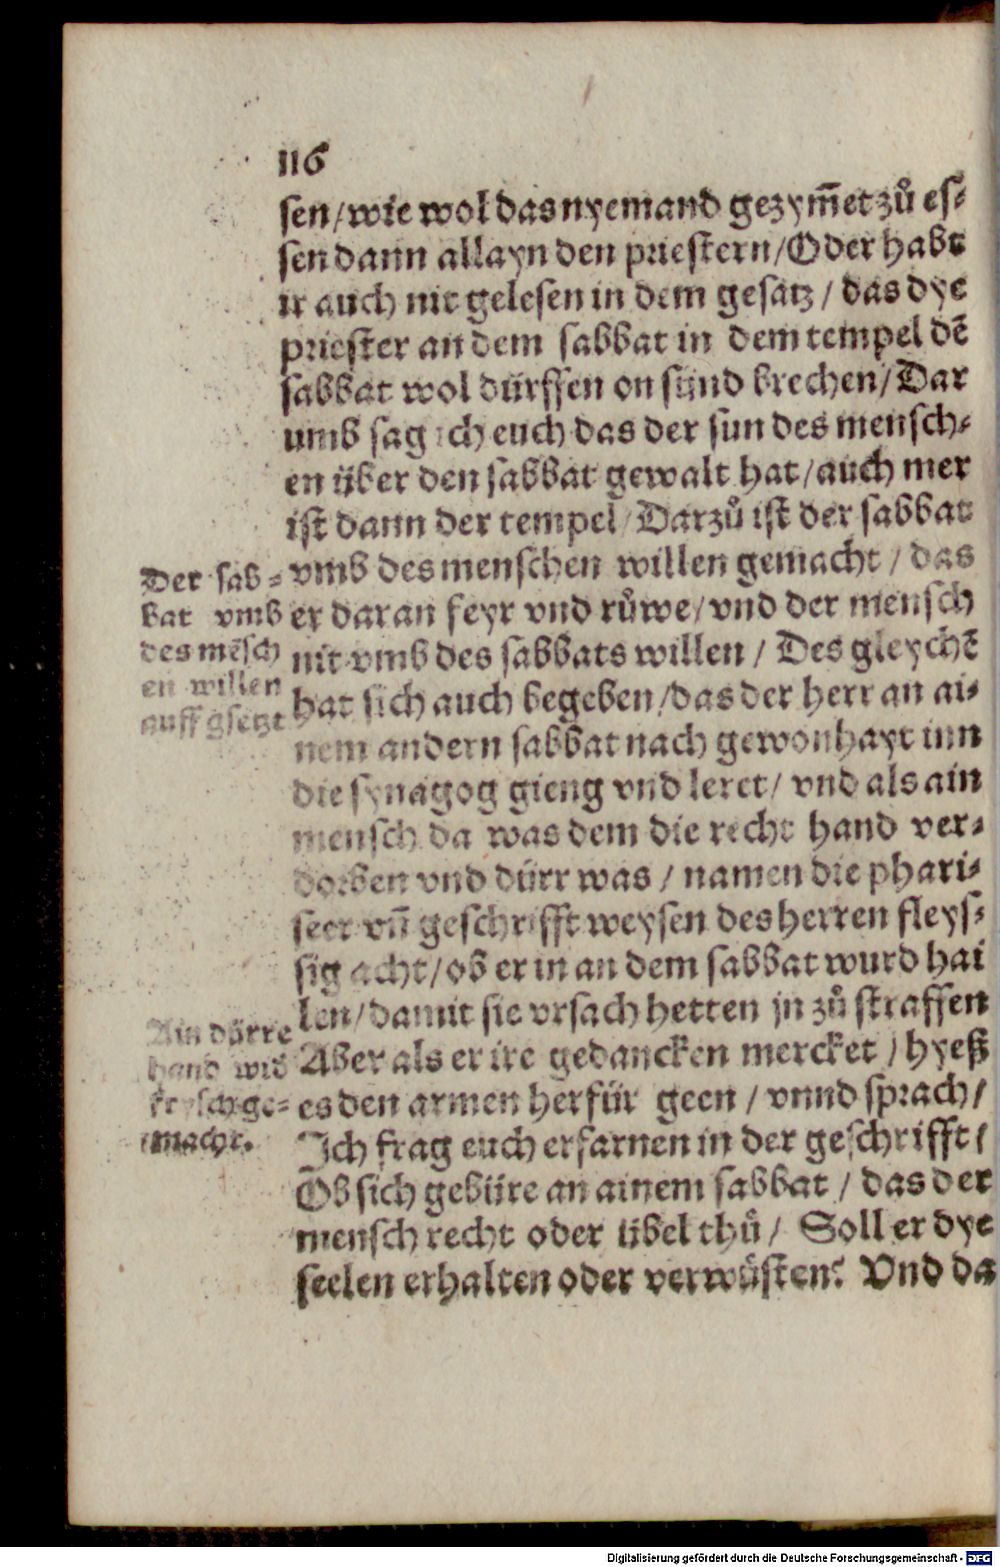 116
sen/wie wol das nyemand gezym̃et zů es⸗
sen dann allayn den priestern/Oder habt
ir auch nit gelesen in dem gesatz / das dye
priester an dem sabbat in dem tempel dē
sabbat wol dürffen on sünd brechen/Dar
umb sag ich euch das der sun des mensch⸗
en über den sabbat gewalt hat/auch mer
ist dann der tempel/Darzů ist der sabbat
vmb des menschen willen gemacht / das
er daran feyr vnd růwe/vnd der mensch
nit vmb des sabbats willen / Des gleychē
hat sich auch begeben/das der herr an ai⸗
nem andern sabbat nach gewonhayt inn
die synagog gieng vnd leret/ vnd als ain
mensch da was dem die recht hand ver⸗
dorben vnd dürr was / namen die phari⸗
seer vñ geschrifft weysen des herren fleys⸗
sig acht/ob er in an dem sabbat wurd hai
len/damit sie vrsach hetten jn zů straffen
Aber als er ire gedancken mercket / hyeß
es den armen herfür geen / vnnd sprach/
Ich frag euch erfarnen in der geschrifft/
Ob sich gebüre an ainem sabbat / das der
mensch recht oder übel thů/ Soll er dye
seelen erhalten oder verwüsten? Vnd da
Der sab⸗
bat vmb
des mēsch
en willen
auff gsetzt
Ain dörre
hand wid
frysch ge⸗
macht.
Digitalisierung gefördert durch die Deutsche Forschungsgemeinschaft - DFG